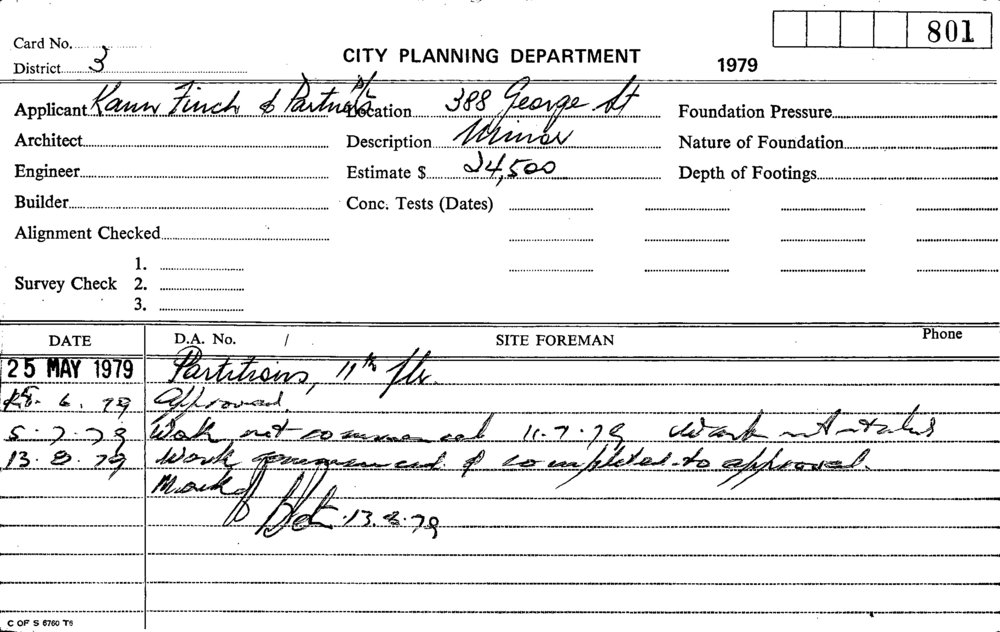 801
Card No.
CITY PLANNING DEPARTMENT 1979
District 3
Applicant Kann Finch & Partners P/L Location 388 George St Foundation Pressure
Architect Description Minor Nature of Foundation
Engineer Estimate $ 24,500 Depth of Footings
Builder Conc. Tests (Dates)
Alignment Checked
1.
Survey Check 2.
3.
DATE D.A. No. / SITE FOREMAN Phone
25 MAY 1979 Partitions, 11th flr.
6. 79 Approved.
5.7.79 Work not commenced 11.7.79 Work not
13.8.79 Work commenced & completed to approval.
13.8.79
C OF S 6760 T6